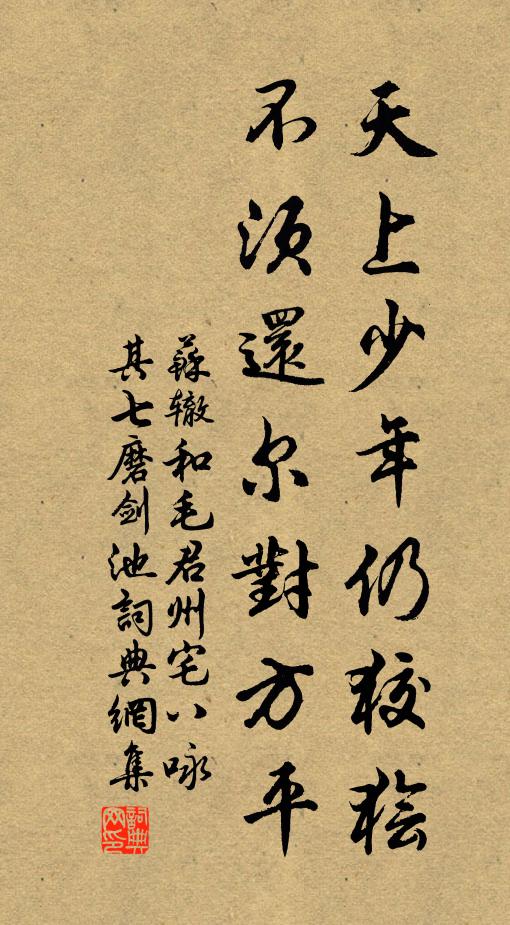 天上少年仍狡獪
不須還尔對方平
蘇辙和毛君州宅八咏
其七磨劍池詞典網集
詞典网印